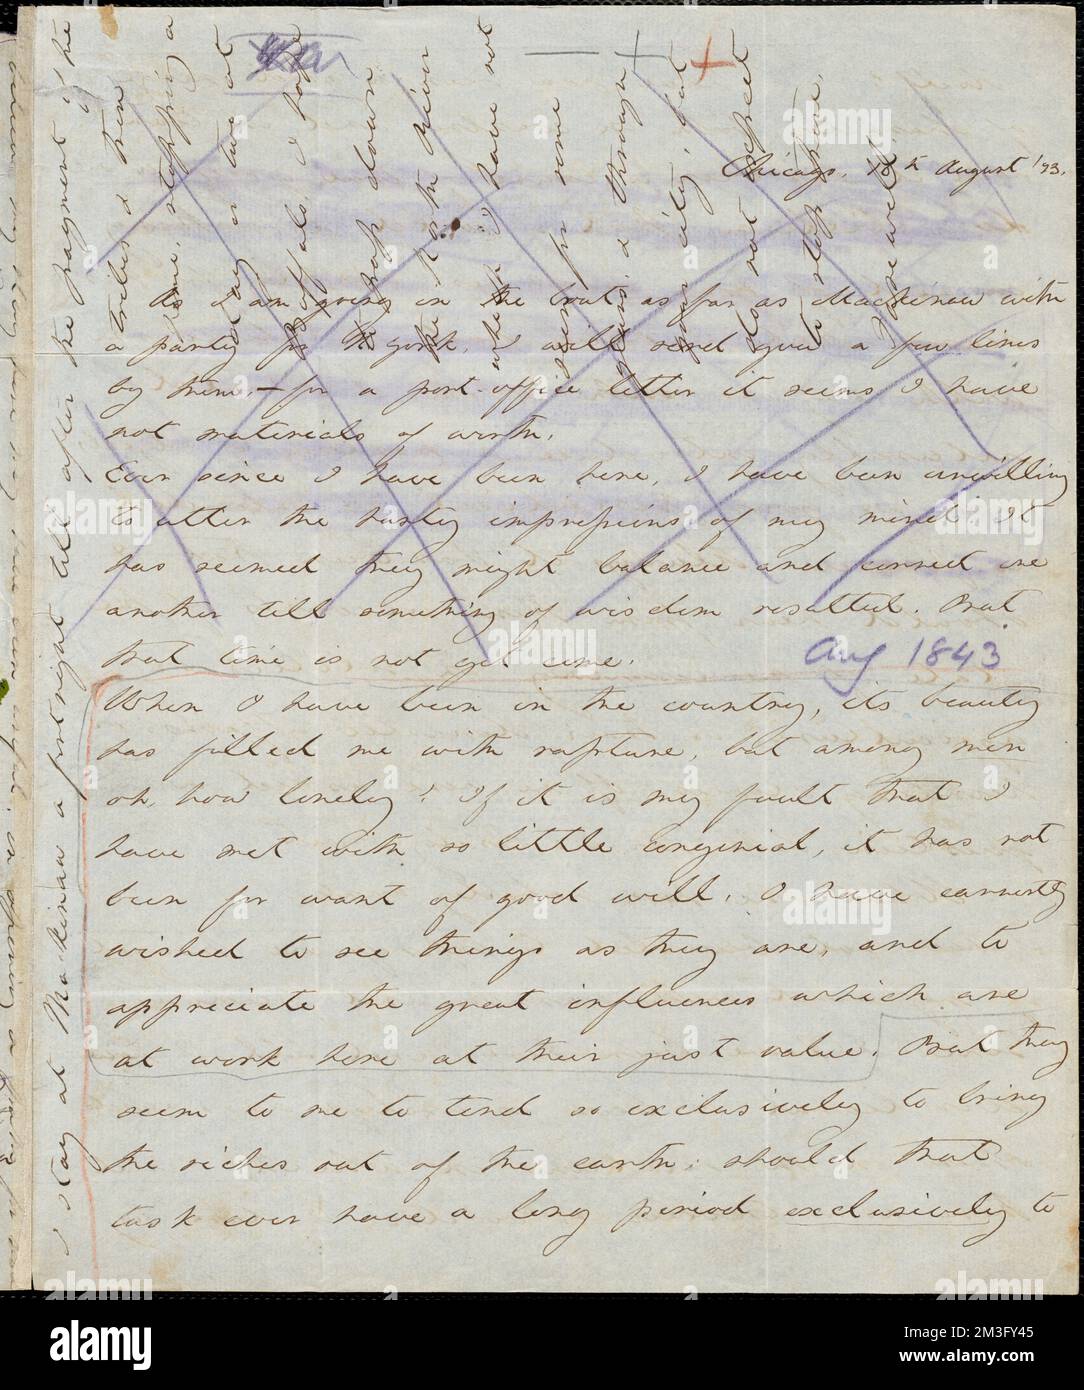 Chicago. August '43.
As I am going in the boat as far as Mackinaw with
a party for N. York, I will send you a few lines
by them, — for a post-office letter it seems I have
not materials of worth.
Ever since I have been here, I have been unwilling
to utter the hasty impressions of my mind. It
has seemed they might balance and correct one
another till something of wisdom resulted. But
that time is not yet come.
Aug 1843
When I have been in the country, its beauty
has filled me with rapture, but among men
oh, how lonely! If it is my fault that I
have met with so little congenial, it has not
been for want of good will. I have earnestly
wished to see things as they are, and to
appreciate the great influences which are
at work here at their just value. But they
seem to me to tend so exclusively to bring
the riches out of the earth; should that
task ever have a long period exclusively to
I stay at Mackinaw a fortnight till after the payment of the
tribes & then
stopping a
day or two at
I hope
down
the River
where I have not
been for some
years, & through
city, but
do not expect
to stop there.
Farewell
alamy
Image ID: 2M3FY45
www.alamy.com